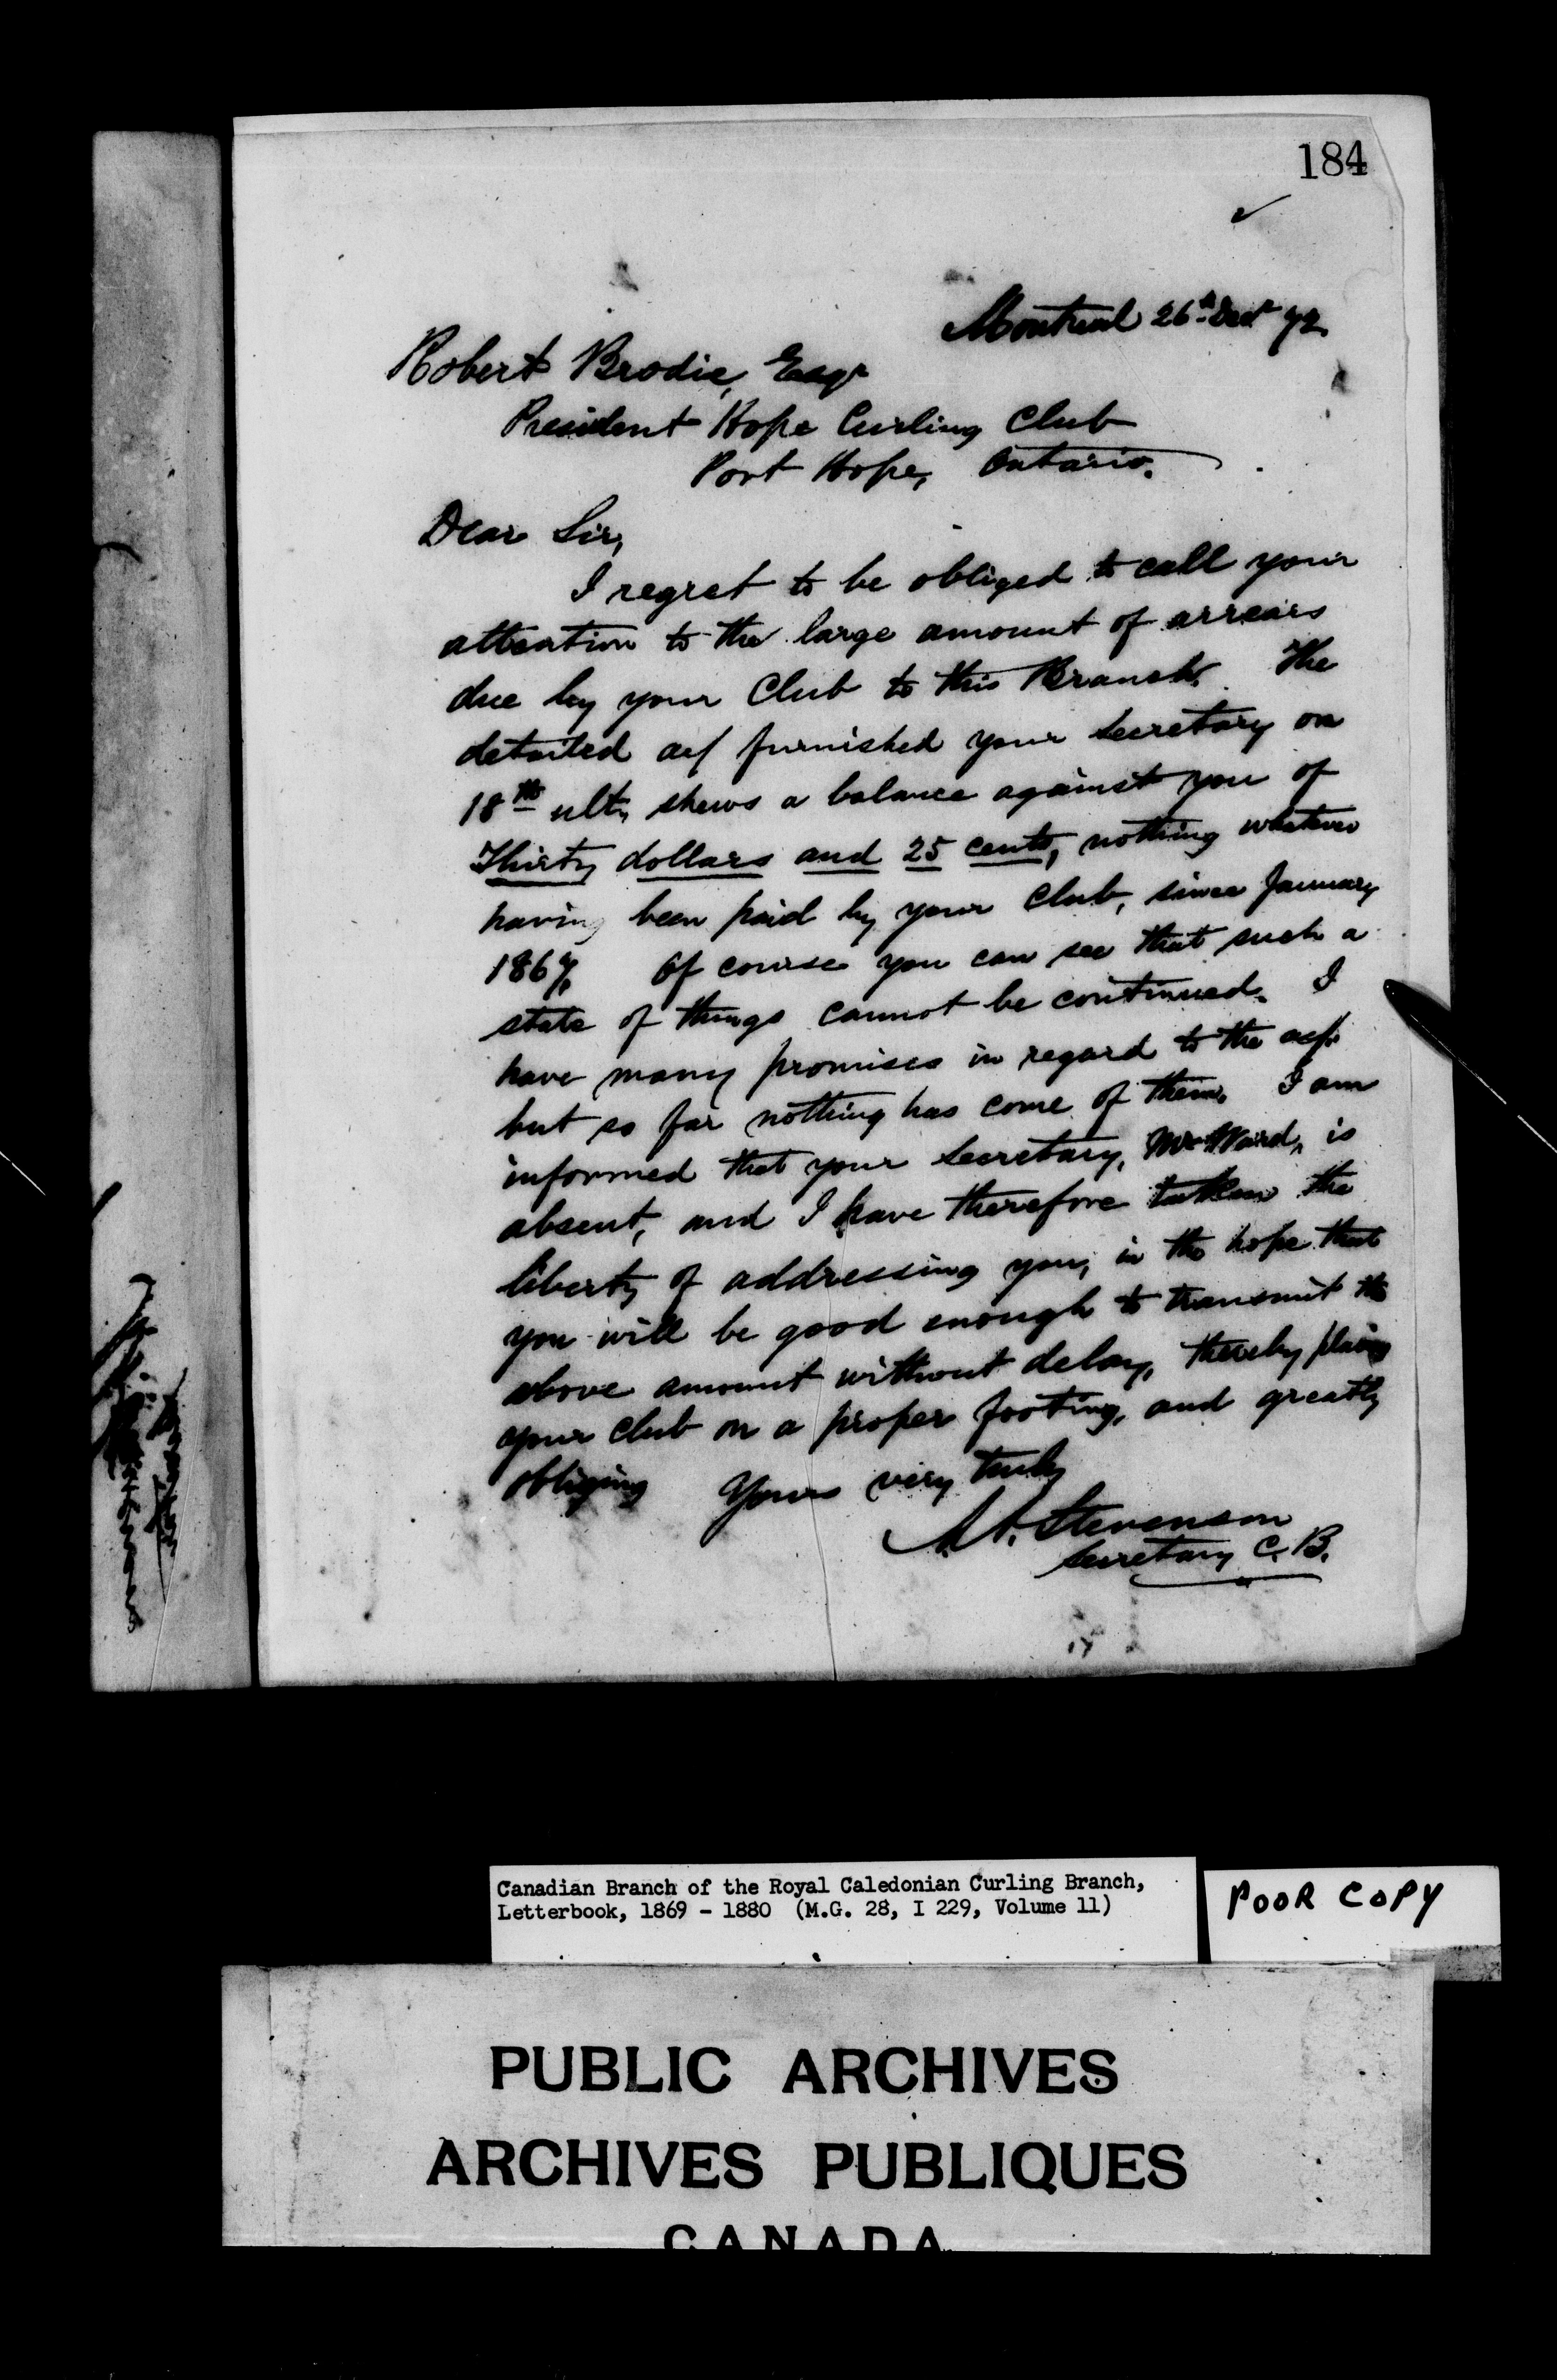 184
Montreal 26th Decr 72.
Robert Brodie, Esqr
President Hope Curling Club
Port Hope, Ontario.
Dear Sir,
I regret to be obliged to call your
attention to the large amount of arrears
due by your Club to this Branch. The
detailed a/c furnished your Secretary on
18th ulto, shews a balance against you of
Thirty dollars and 25 cents, nothing whatever
having been paid by your Club, since January
1867. Of course you can see that such a
state of things cannot be continued. I
have many promises in regard to the a/c.
but so far nothing has come of them. I am
informed that your Secretary, Mr Ward, is
absent, and I have therefore taken the
liberty of addressing you, in the hope that
you will be good enough to transmit the
above amount without delay, thereby placing
your Club on a proper footing, and greatly
obliging Yours very truly
A. Stevenson
Secretary C. B.
Canadian Branch of the Royal Caledonian Curling Branch,
Letterbook, 1869 - 1880 (M.G. 28, I 229, Volume 11)
POOR COPY
PUBLIC ARCHIVES
ARCHIVES PUBLIQUES
CANADA